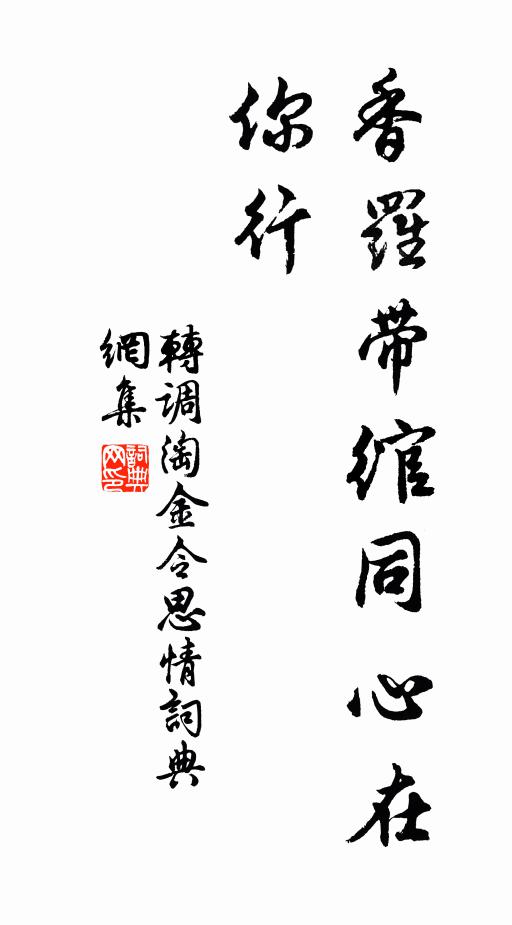 香羅帶綰同心在
你行
轉調淘金令思情詞典
網集
詞典
网印